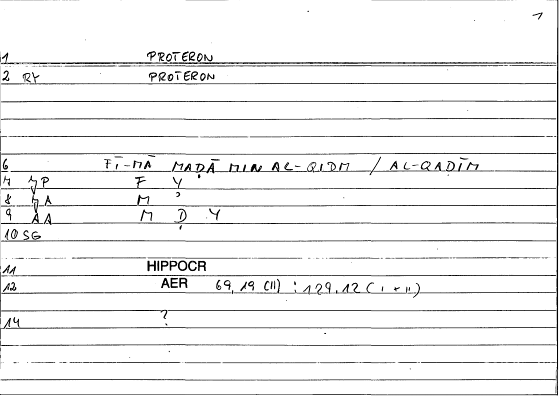 1
1 PROTERON
2 RY PROTERON
6 FĪ-MĀ MAḌĀ MIN AL-QIDM / AL-QADĪM
7 P F Y
8 A M ʾ
9 AA M Ḍ Y
10 SG
11 HIPPOCR
12 AER 69,19 (II) : 129,12 (I + II)
14 ?